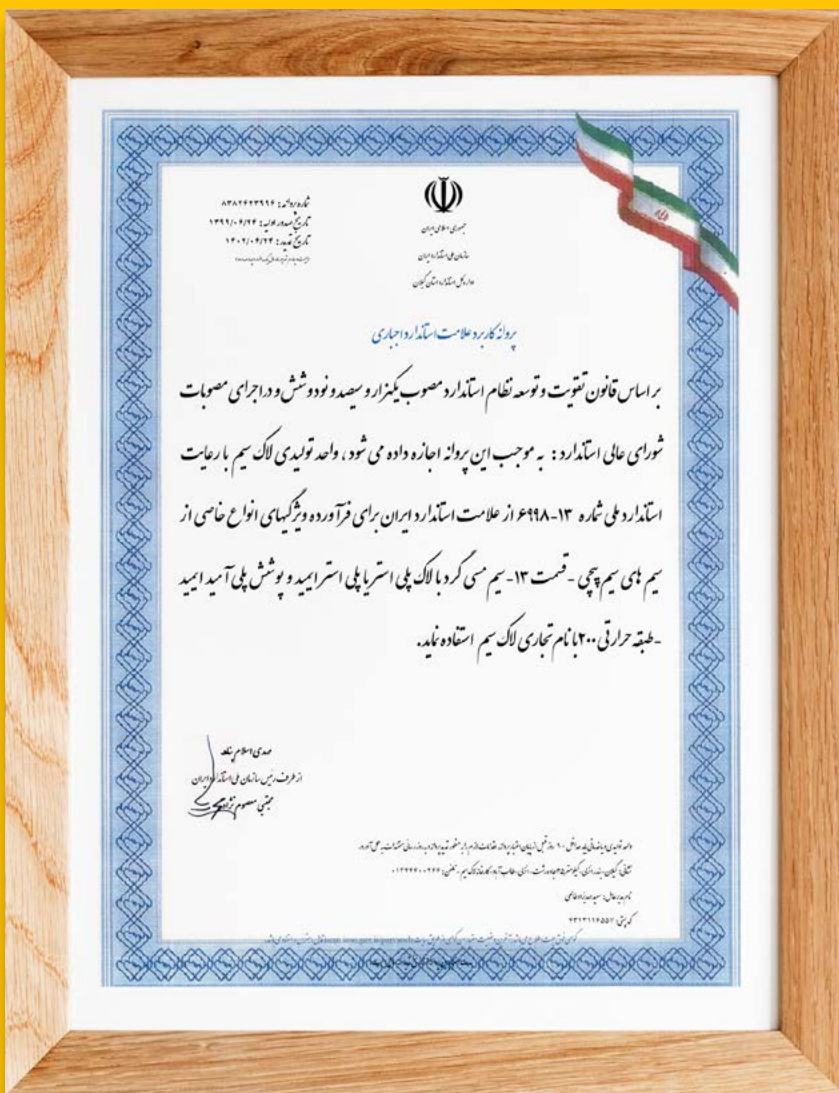 شماره پروانه: ۸۳۸۲۶۲۳۹۹۴
تاریخ صدور اولیه: ۱۳۹۹/۰۶/۲۴
تاریخ تمدید: ۱۴۰۲/۰۶/۲۴
جمهوری اسلامی ایران
سازمان ملی استاندارد ایران
اداره کل استاندارد استان گیلان
پروانه کاربرد علامت استاندارد اجباری
بر اساس قانون تقویت و توسعه نظام استاندارد مصوب یکهزار و سیصد و نود و شش و در اجرای مصوبات
شورای عالی استاندارد : به موجب این پروانه اجازه داده می شود ، واحد تولیدی لاک سیم با رعایت
استاندارد ملی شماره ۱۳-۶۹۹۸ از علامت استاندارد ایران برای فرآورده ویژگیهای انواع خاصی از
سیم های سیم پیچی - قسمت ۱۳- سیم مسی گرد با لاک پلی استر یا پلی استر ایمید و پوشش پلی آمید ایمید
-طبقه حرارتی ۲۰۰ با نام تجاری لاک سیم استفاده نماید.
مهدی اسلام پناه
از طرف رئیس سازمان ملی استاندارد ایران
مجتبی معصوم نژاد
نام مدیرعامل:
کد پستی: ۴۳۱۳۱۱۶۵۵۷